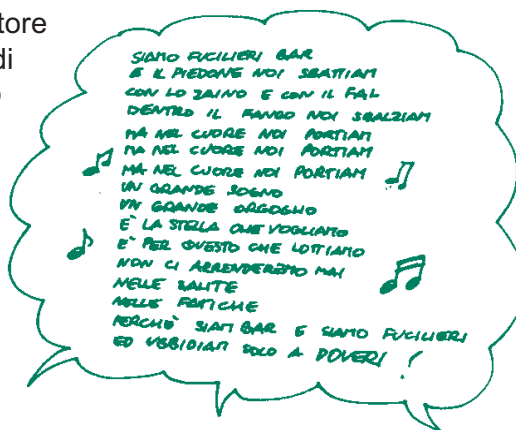 tore
di
o
SIAMO FUCILIERI BAR
E IL PIEDONE NOI SBATTIAM
CON LO ZAINO E CON IL FAL
DENTRO IL FANGO NOI SBALZIAM
MA NEL CUORE NOI PORTIAM
MA NEL CUORE NOI PORTIAM
MA NEL CUORE NOI PORTIAM
UN GRANDE SOGNO
UN GRANDE ORGOGLIO
E' LA STELLA CHE VOGLIAMO
E' PER QUESTO CHE LOTTIAMO
NON CI ARRENDEREMO MAI
NELLE SALITE
NELLE FATICHE
PERCHÈ SIAM BAR E SIAMO FUCILIERI
ED UBBIDIAM SOLO A DOVERI !